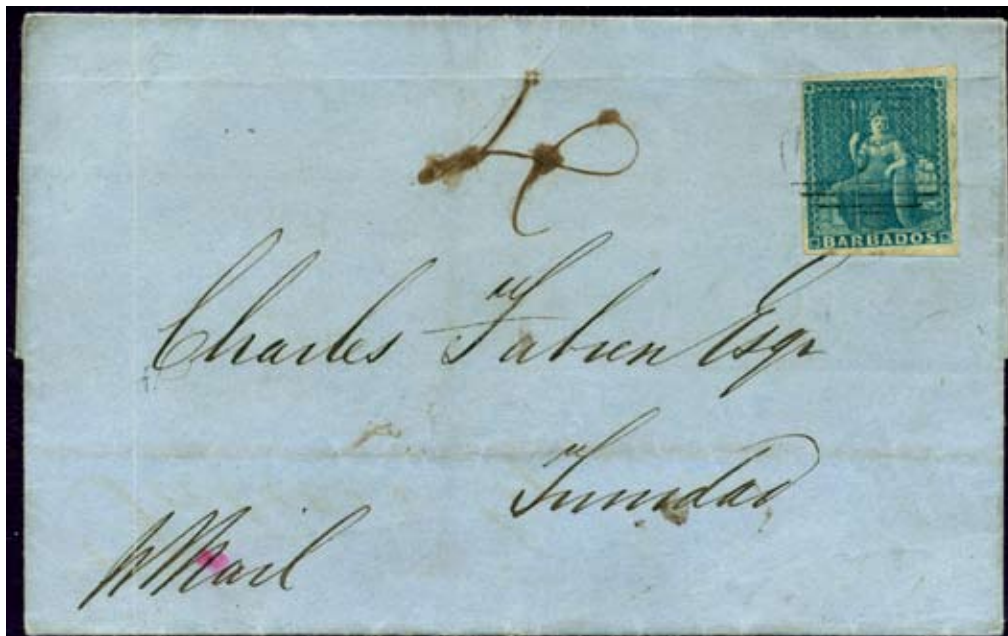 4
BARBADOS
Charles Fabien Esqr
Trinidad
Mail